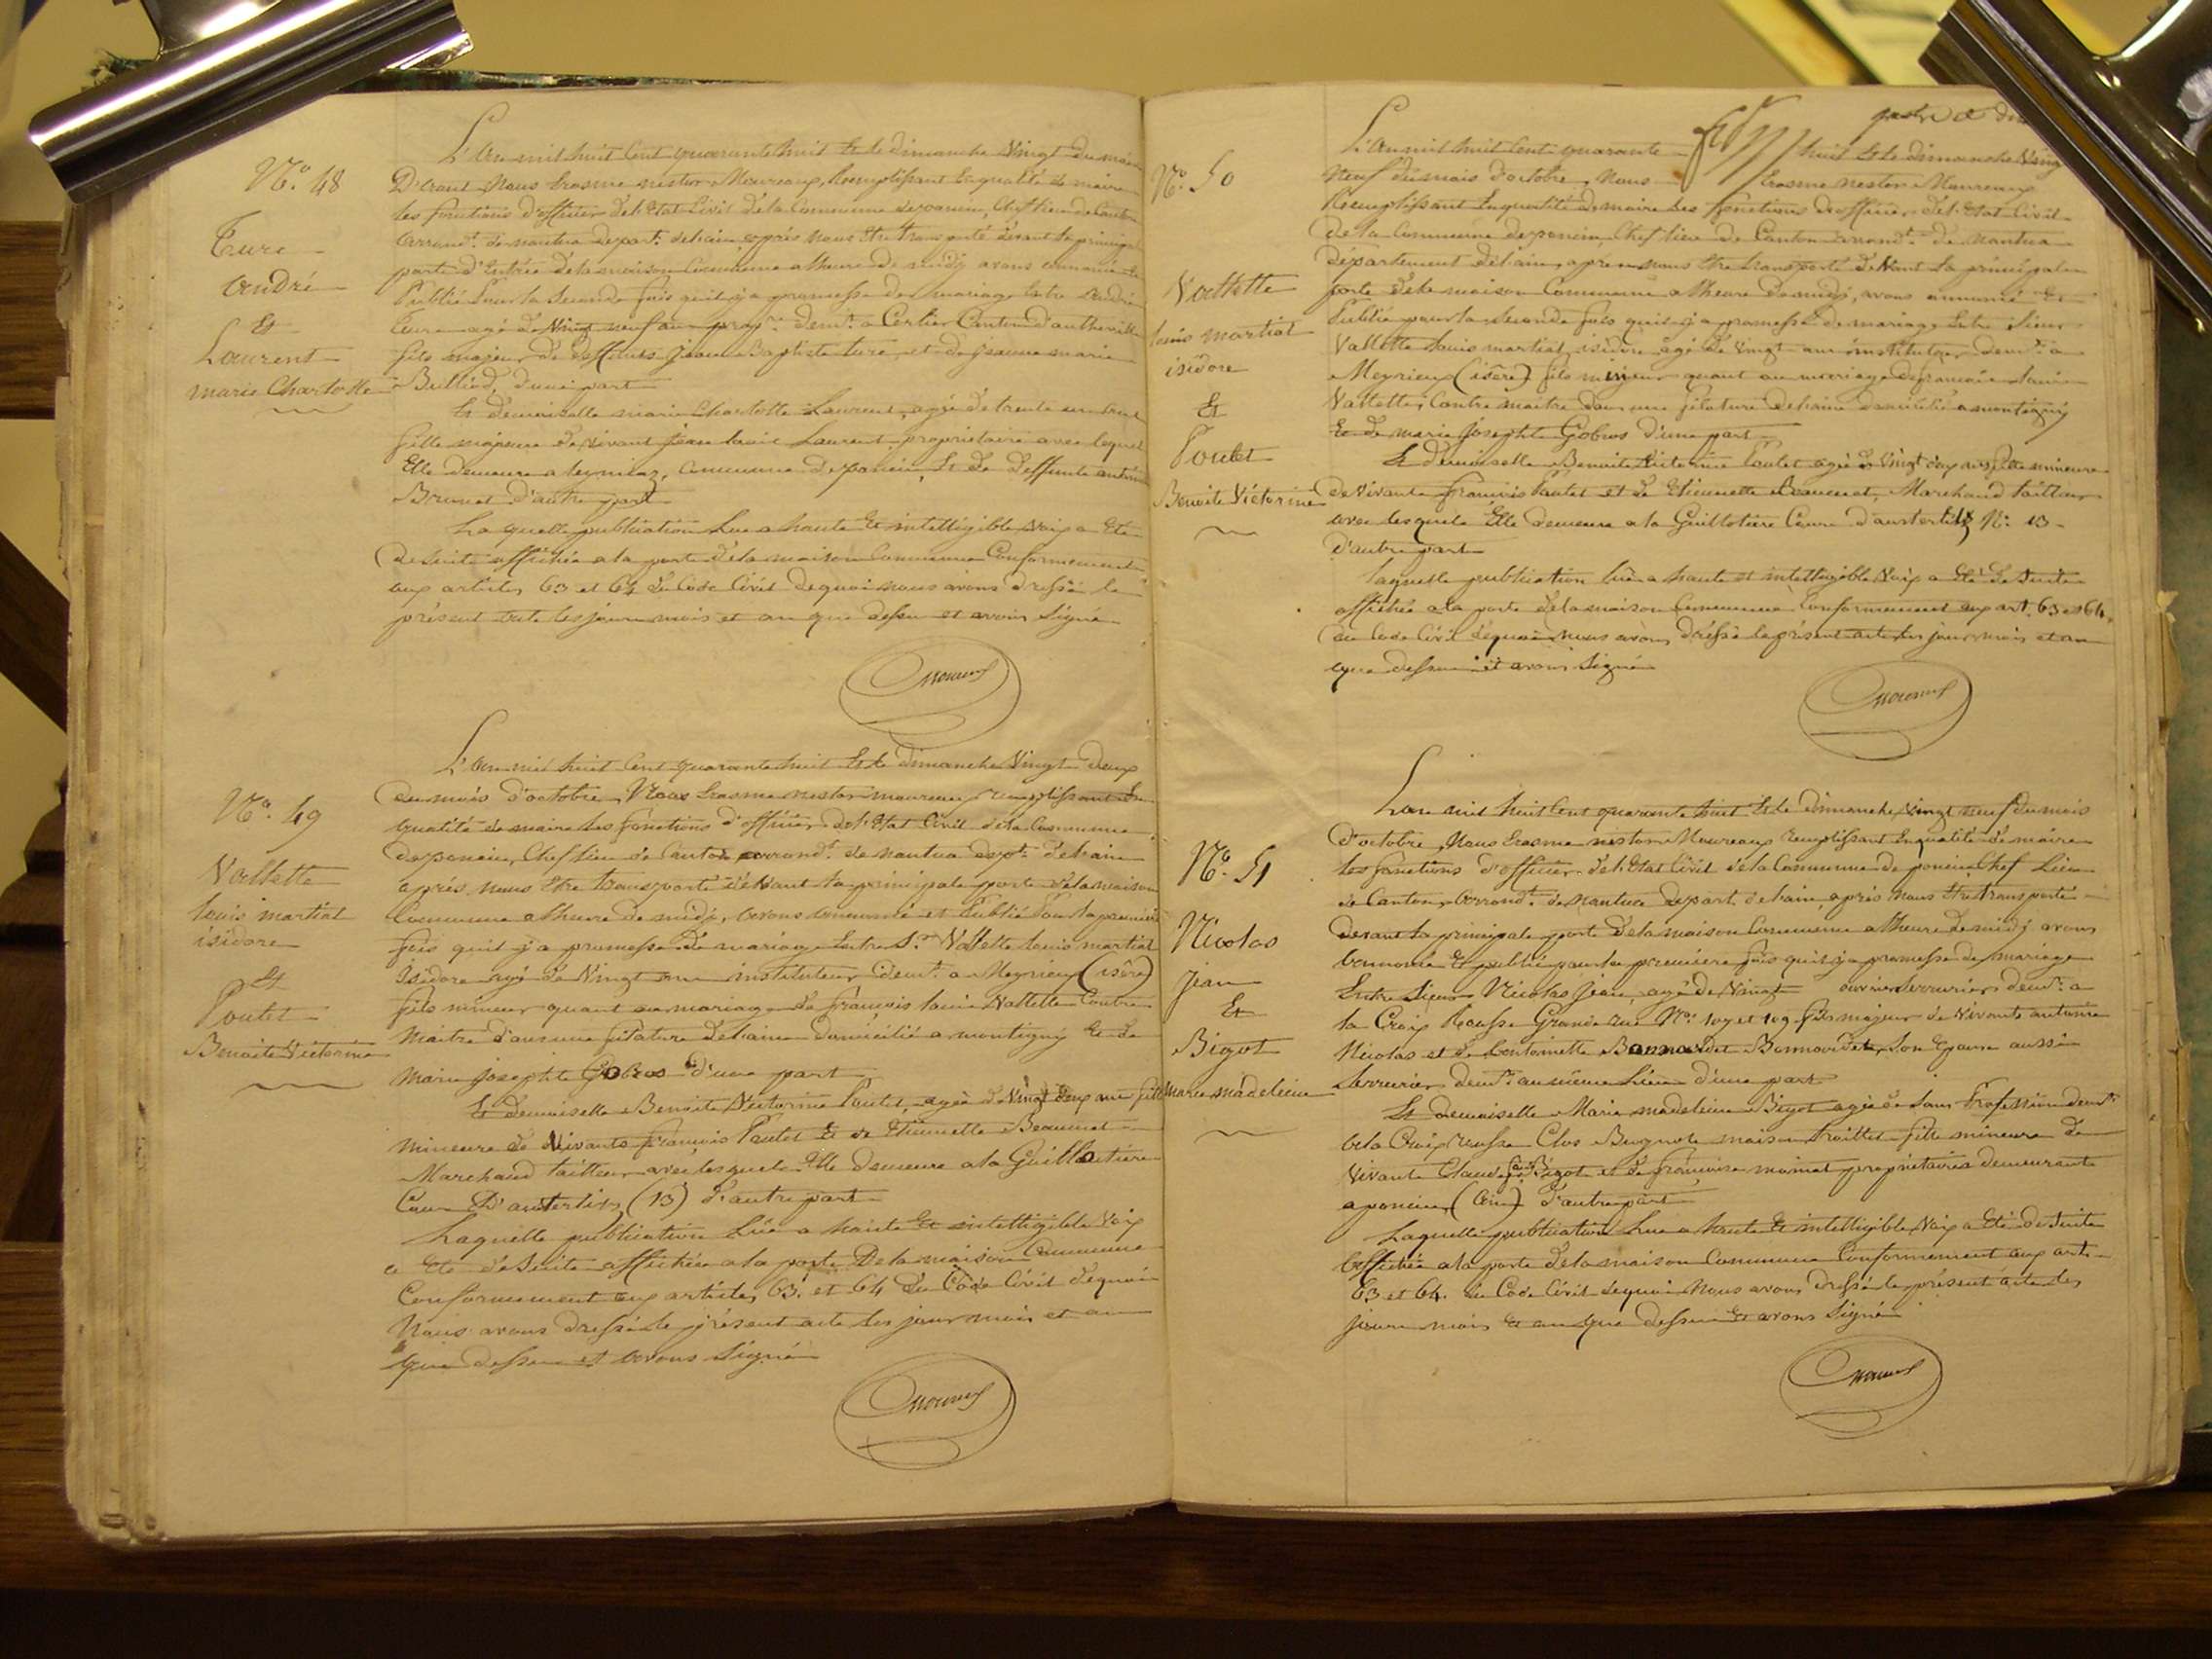 N.o 48
Ture
André
Et
Laurent
marie Charlotte
L'An mil huit Cent quarante huit Et le dimanche Vingt du mois
D'aout Nous Erasme nestor Moureaux, Remplissant En qualité de maire
les fonctions d'officier de l'Etat Civil de la Commune de poncin, Chef lieu de Canton
Arrond.t de nantua depart.t de l'ain, après nous être transporté devant la principale
porte d'Entrée de la maison Commune a l'heure de midy avons annoncé et
Publié Pour la Seconde fois qu'il y a promesse de mariage Entre André
Ture agé de Vingt neuf ans prop.re dem.t a Canton d'
fils majeur de deffunts jean Baptiste ture et de jeanne marie
Bulliod, d'une part
Et demoiselle marie Charlotte Laurent, agée de trente un ans
fille majeure de Vivant jean louis Laurent propriétaire avec lequel
Elle demeure a leymiaz, Commune de poncin, Et de deffunte
Brunet d'autre part
La quelle publication Lue a haute Et intelligible Voix a Eté
de Suite affichée a la porte de la maison Commune Conformement
aux articles 63 et 64 du Code Civil de quoi nous avons dressé le
présent acte les jour mois et an que dessu et avons Signé
N.o 49
Vallette
louis martial
isidore
Et
Poulet
Benoite Victorine
L'An mil huit Cent quarante huit Et le dimanche Vingt deux
du mois d'octobre, Nous Erasme nestor moureaux remplissant En
qualité de maire les fonctions d'officier de l'Etat Civil de la Commune
de poncin, Chef lieu de Canton arrond.t de nantua dep.t de l'ain
après nous Etre transporté devant la principale porte de la maison
Commune a l'heure de midy, avons annoncé et Publié Pour la premiere
fois qu'il y a promesse de mariage Entre S.r Vallette louis martial
Isidore agé de Vingt ans instituteur dem.t a Meyrieux (isère)
fils mineur quant au mariage de françois louis Vallette Contre
Maitre dans une filature de laine domicilié a montigny Et de
Marie josephte Gobros d'une part
Et demoiselle Benoite Victorine Poulet, agée de Vingt deux ans fille
mineure de Vivants françois Poulet Et de Etiennette Beaumet
Marchand tailleur avec lesquels Elle demeure a la Guillotière
Cour D'austerlitz (13) d'autre part
Laquelle publication Lüe a haute Et intelligible Voix
a Eté de Suite affichée a la porte De la maison Commune
Conformement aux articles 63. et 64 du Code Civil de quoi
Nous avons dressé le présent acte les jour mois et an
que dessu et avons Signé
N.o 50
Vallette
louis martial
isidore
Et
Poulet
Benoite Victorine
L'An mil huit Cent quarante huit Et le dimanche Vingt
Neuf du mois d'octobre, Nous Erasme nestor Moureaux
Remplissant En qualité de maire les fonctions d'officier de l'Etat Civil
De la Commune de poncin, Chef lieu de Canton arrond.t de Nantua
Département de l'ain, apres nous Etre transporté devant la principale
porte de la maison Commune a l'heure de midy, avons annoncé Et
Publié pour la Seconde fois qu'il y a promesse de mariage Entre Sieur
Vallette louis martial isidore agé de Vingt ans instituteur dem.t a
Meyrieux (isère) fils mineur quant au mariage de françois louis
Vallette, Contre maitre dans une filature de laine domicilié a montigny
Et de marie josephte Gobros d'une part
Et demoiselle Benoite Victorine Poulet agée de Vingt deux ans fille mineure
de Vivants françois Poulet et de Etiennette Beaumet, Marchand tailleur
avec lesquels Elle demeure a la Guillotiere Cour d'austerlitz N.o 13
d'autre part
laquelle publication lüe a haute et intelligible Voix a Eté de Suite
affichée a la porte de la maison Commune Conformement aux art. 63 et 64.
du Code Civil de quoi nous avons dréssé le présent acte les jour, mois et an
que dessu et avons Signé
N.o 51
Nicolas
Jean
Et
Bigot
Marie madeleine
L'an mil huit Cent quarante huit Et le dimanche Vingt neuf du mois
d'octobre, Nous Erasme nestor Moureaux remplissant En qualité de maire
les fonctions d'officier de l'Etat Civil de la Commune de poncin, Chef lieu
de Canton, Arrond.t de Nantua Depart. de l'ain, après nous Etre transporté
devant la principale porte de la maison Commune a l'heure de midy avons
annoncé Et publié pour la première fois qu'il y a promesse de mariage
Entre Sieur Nicolas Jean, agé de Vingt ouvrier Serrurier dem.t a
la Croix Rousse Grande rue N.o 107 et 109 fils majeur de Vivants antoine
Nicolas et de Antoinette Bonnardet Son Epouse aussi
Serrurier dem.t au même Lieu d'une part
Et demoiselle Marie madeleine Bigot agée de Sans Profession dem.t
a la Croix rousse Clos Bugnot maison fille mineure de
Vivants Claude Bigot et de françoise propriétaires demeurants
a poncin (Ain) d'autre part
Laquelle publication Lue a haute Et intelligible Voix a Eté de Suite
Affichée a la porte de la maison Commune Conformement aux art.
63 et 64. du Code Civil de quoi Nous avons dréssé le présent acte les
jour mois Et an que dessu Et avons Signé